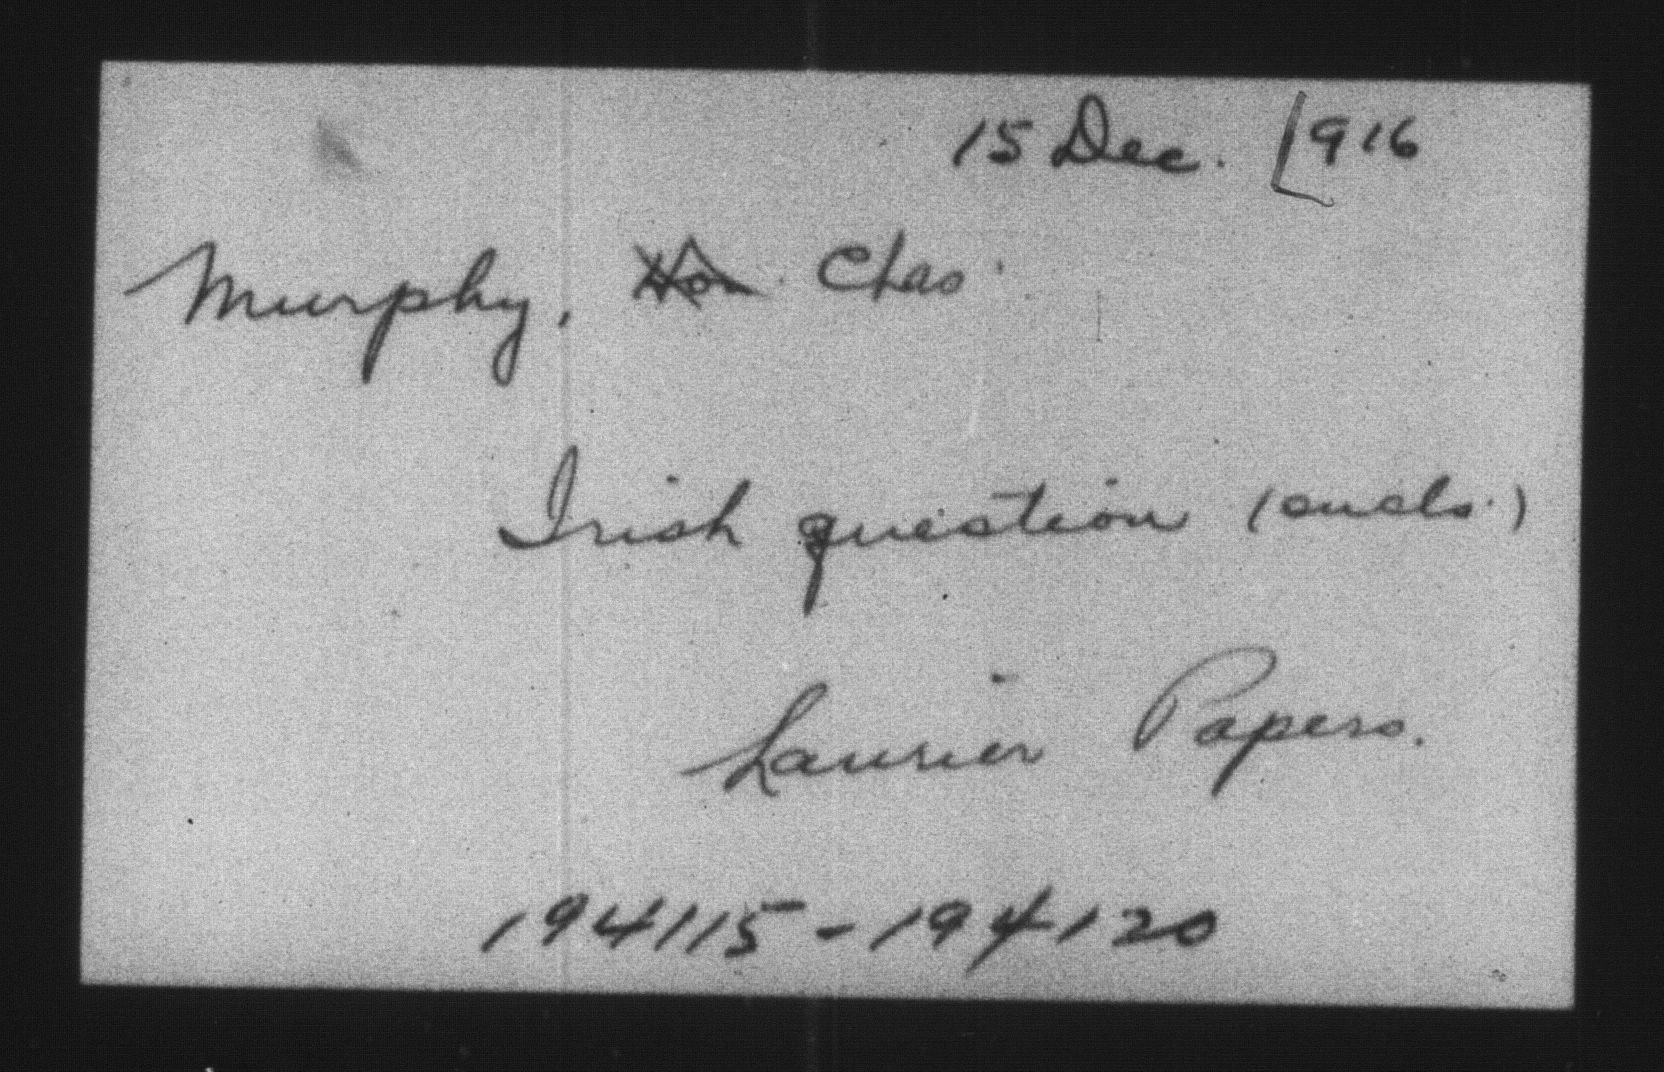 15 Dec. 1916
Murphy, Hon. Chas.
Irish question (encls.)
Laurier Papers.
194115-194120